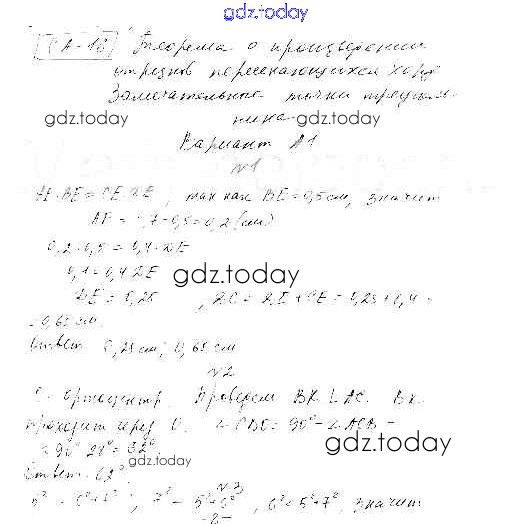 gdz.today
СА-16 Теорема о произведении
отрезков пересекающихся хорд
Замечательные точки треуголь-
gdz.today
ника gdz.today
Вариант А1
№1
AE·BE = CE·DE, так как BE = 0,5 см, значит
AE = 0,7-0,5 = 0,2 (см)
0,2·0,5 = 0,4·DE
0,1 = 0,4 DE
gdz.today
DE = 0,25, DC = DE + CE = 0,25 + 0,4 =
= 0,65 см.
Ответ: 0,25 см; 0,65 см
№2
ортоцентр. Проведем BK ⊥ AC. BK
проходит через O. ∠CBO = 90° - ∠ACB =
gdz.today
= 62°
Ответ: 62°
gdz.today
№3
, 7² = 5²+6², 6² 5²+7², значит